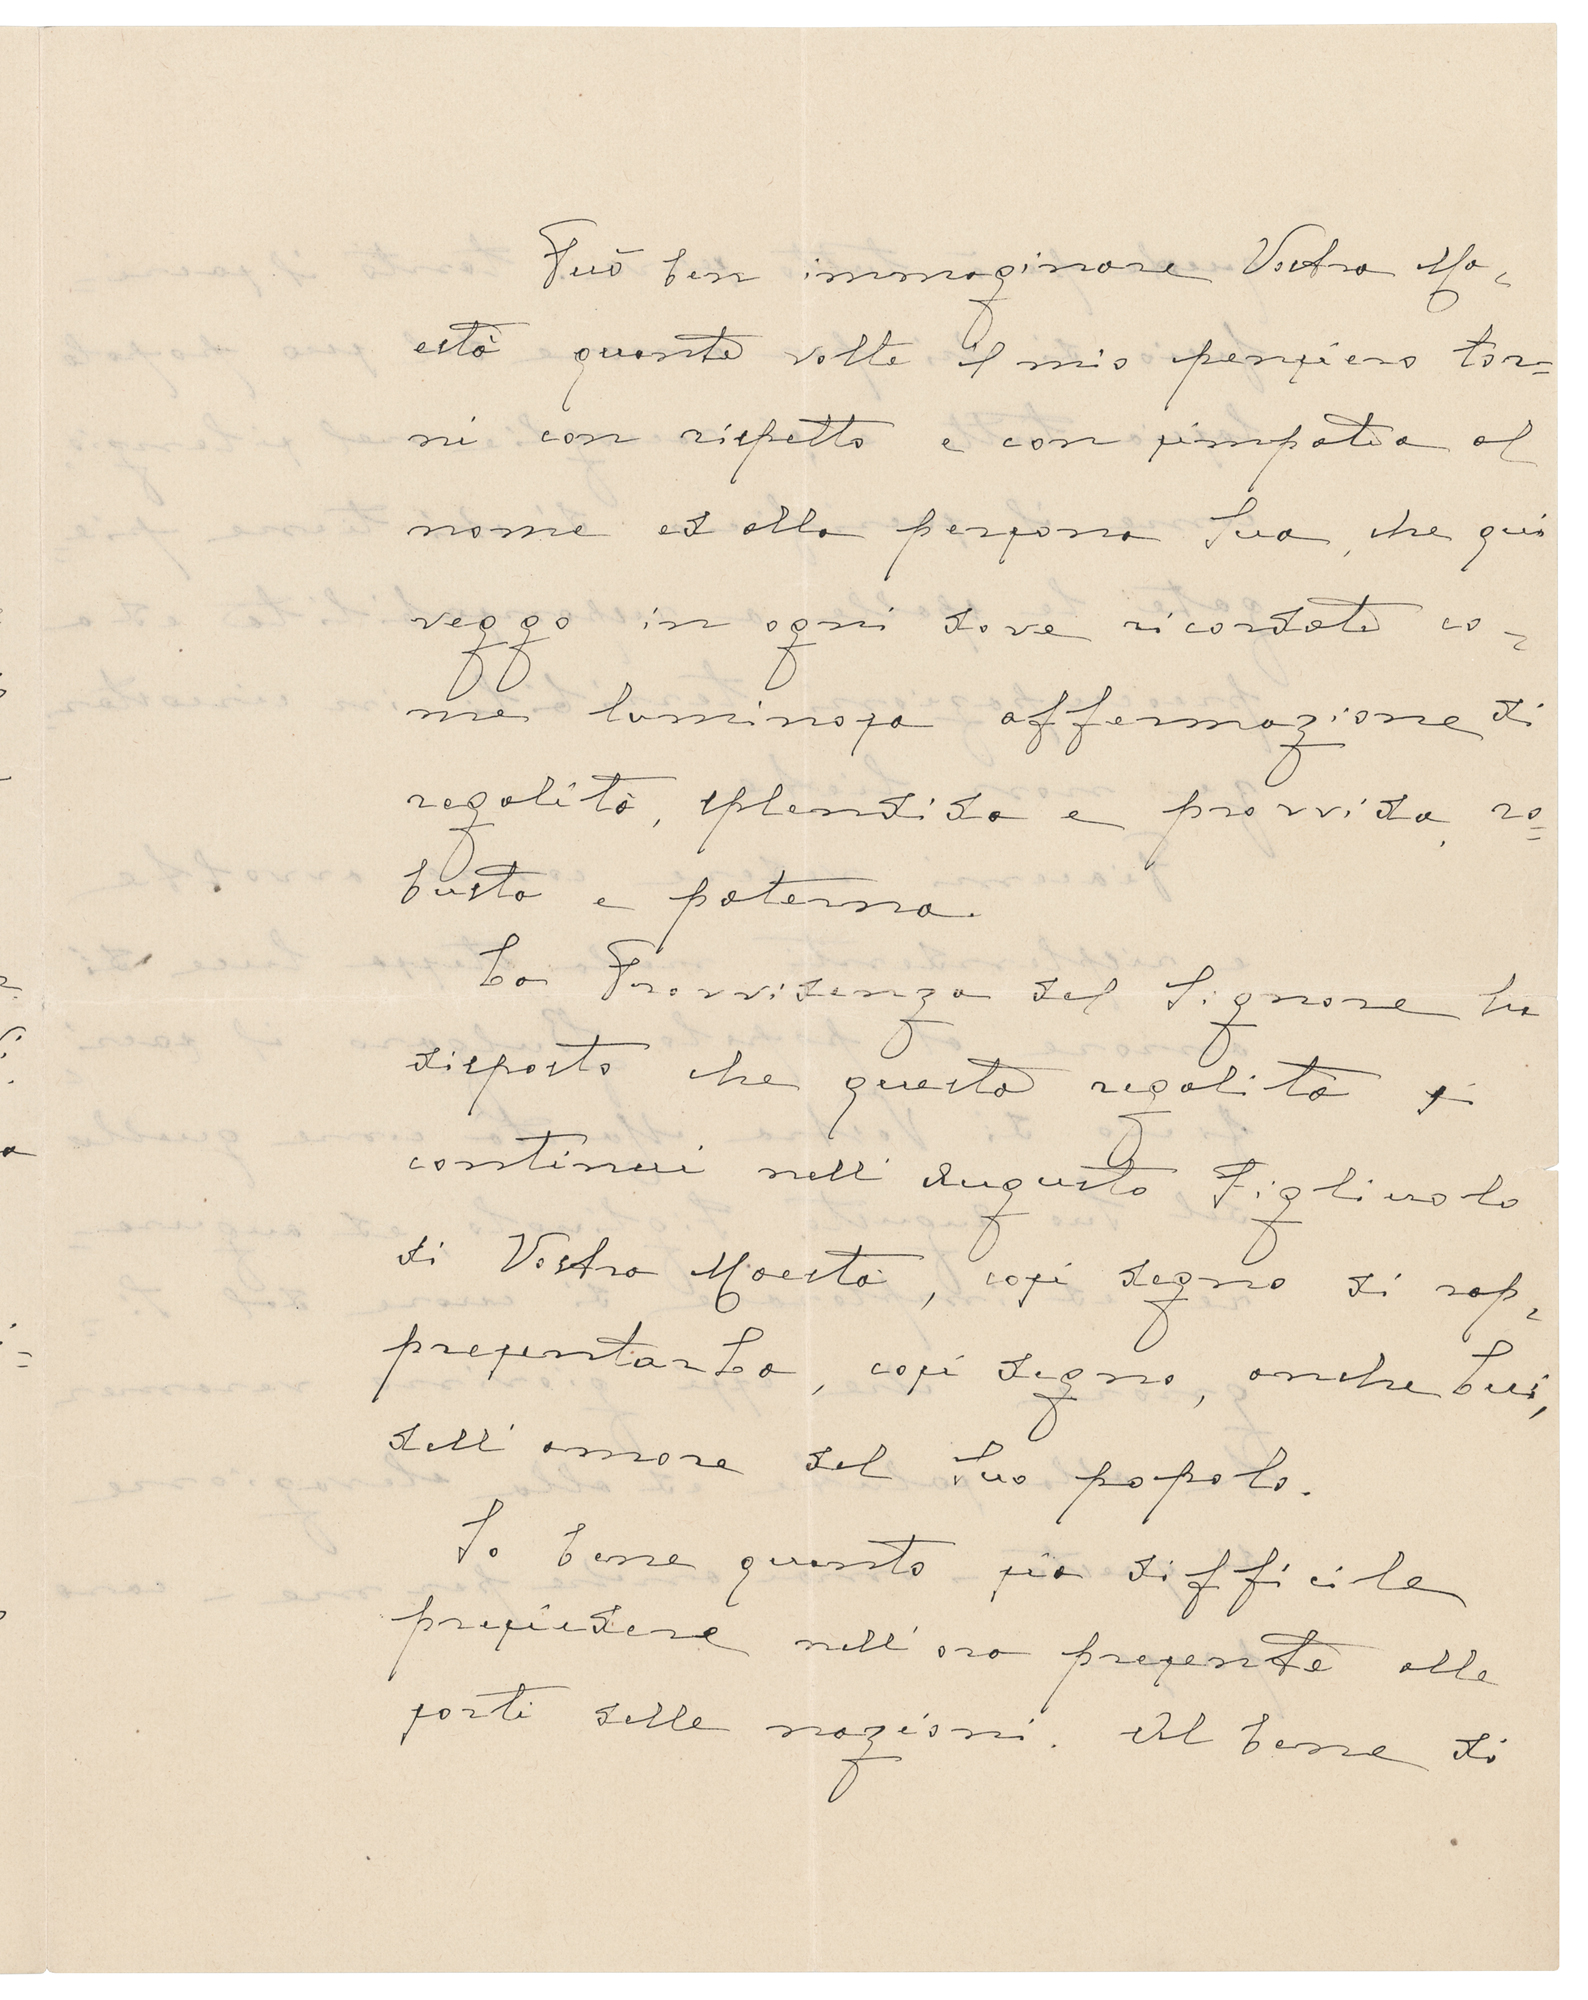 Può ben immaginare Vostra Ma-
està quante volte il mio pensiero tor=
ni con rispetto e con simpatia al
nome ed alla persona Sua, che qui
veggo in ogni dove ricordate co-
me luminosa affermazione di
regalità, splendida e provvida, ro=
busta e paterna.
La Provvidenza del Signore ha
disposto che questa regalità si
continui nell'Augusto Figliuolo
di Vostra Maestà, così degno di rap-
presentarLa, così degno, anche Lui,
dell'amore del Suo popolo.
So bene quanto sia difficile
presiedere nell'ora presente alle
sorti delle nazioni. Al bene di